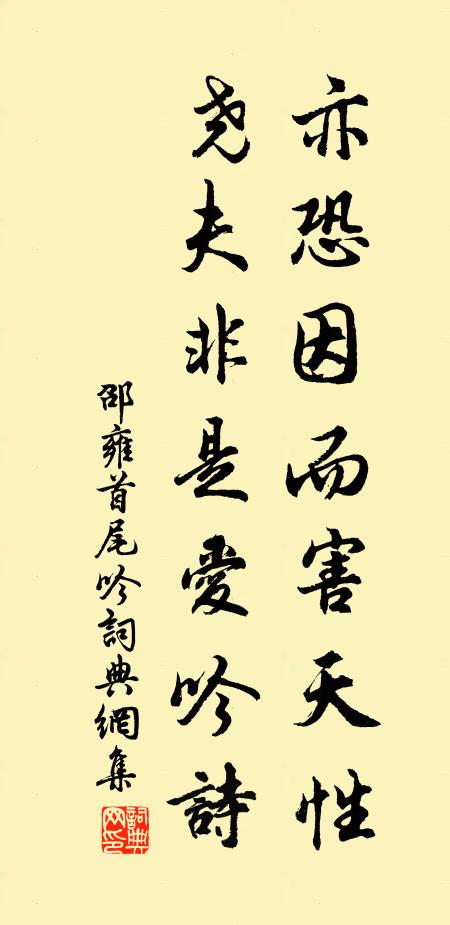 亦恐因而害天性
尧夫非是愛吟詩
邵雍首尾吟詞典網集
詞典網印